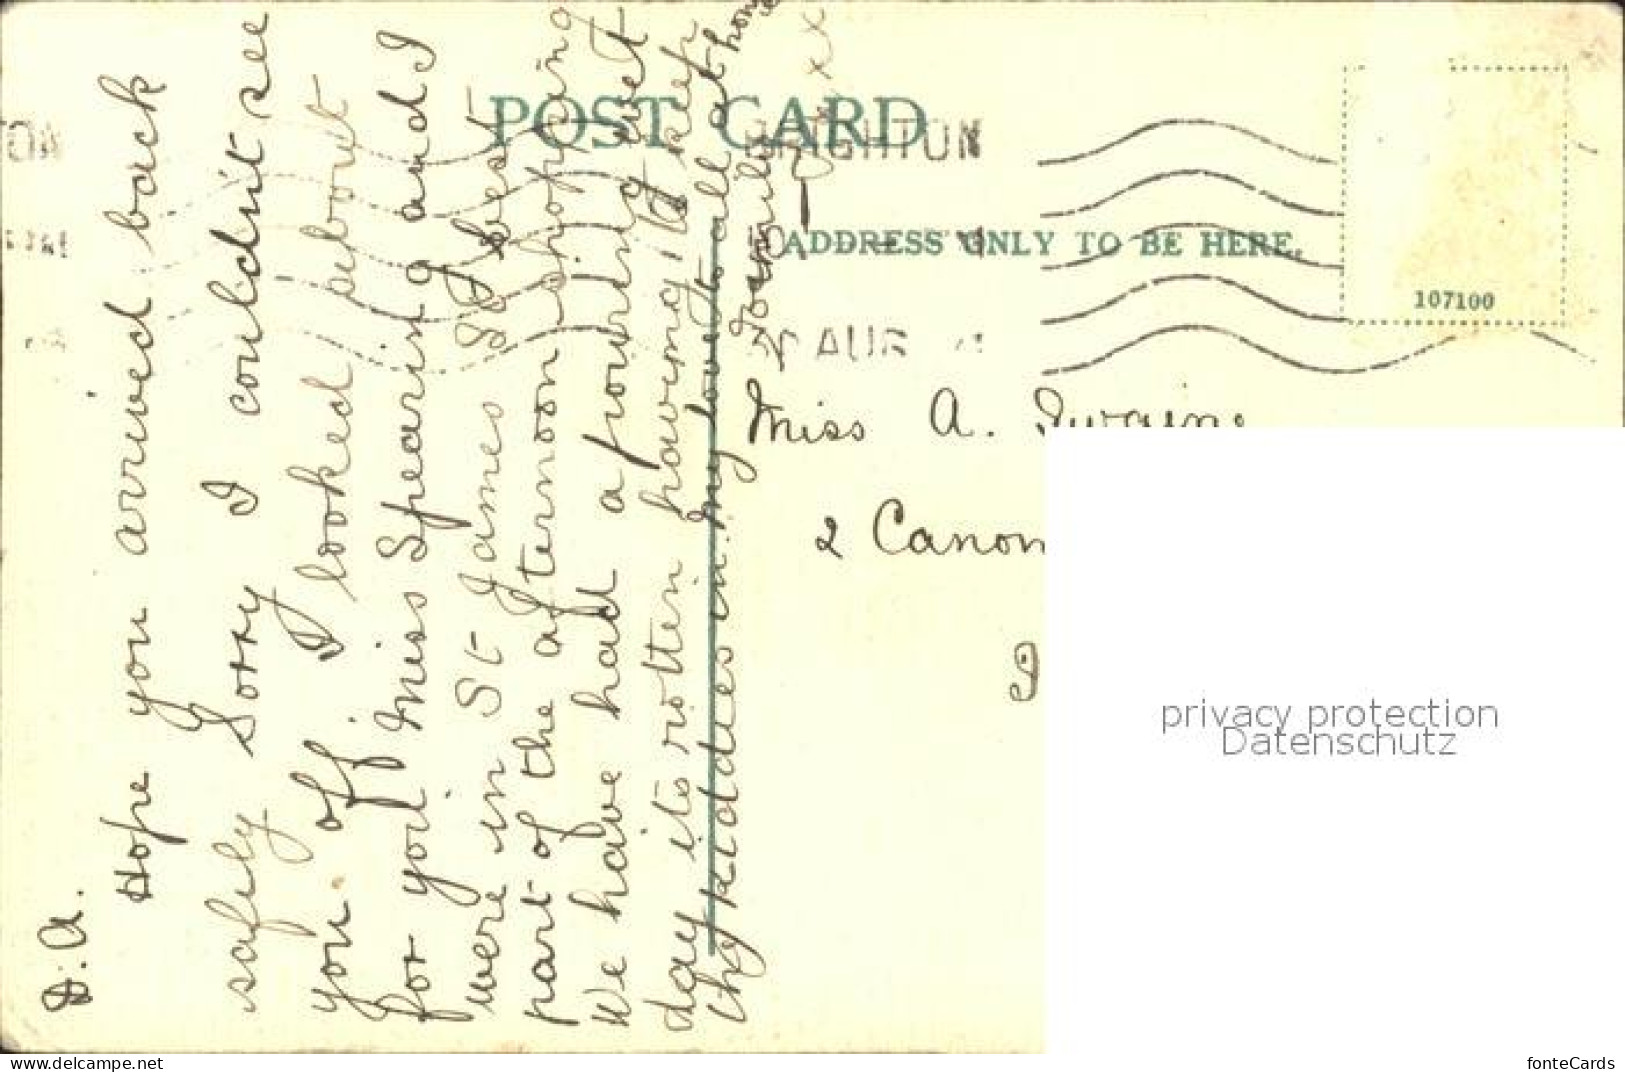 POST CARD
ADDRESS ONLY TO BE HERE.
BRIGHTON
AUG
107100
D. A.
Hope you arrived back
safely Sorry I couldnt see
you off I looked about
for you Miss Spearing and I
were in St James St best
part of the afternoon shopping
We have had a pouring wet
day its rotten having to keep
the kiddies in. My love to all at home
xxx
Miss A.
2 Canon
privacy protection
Datenschutz
www.delcampe.net
fonteCards